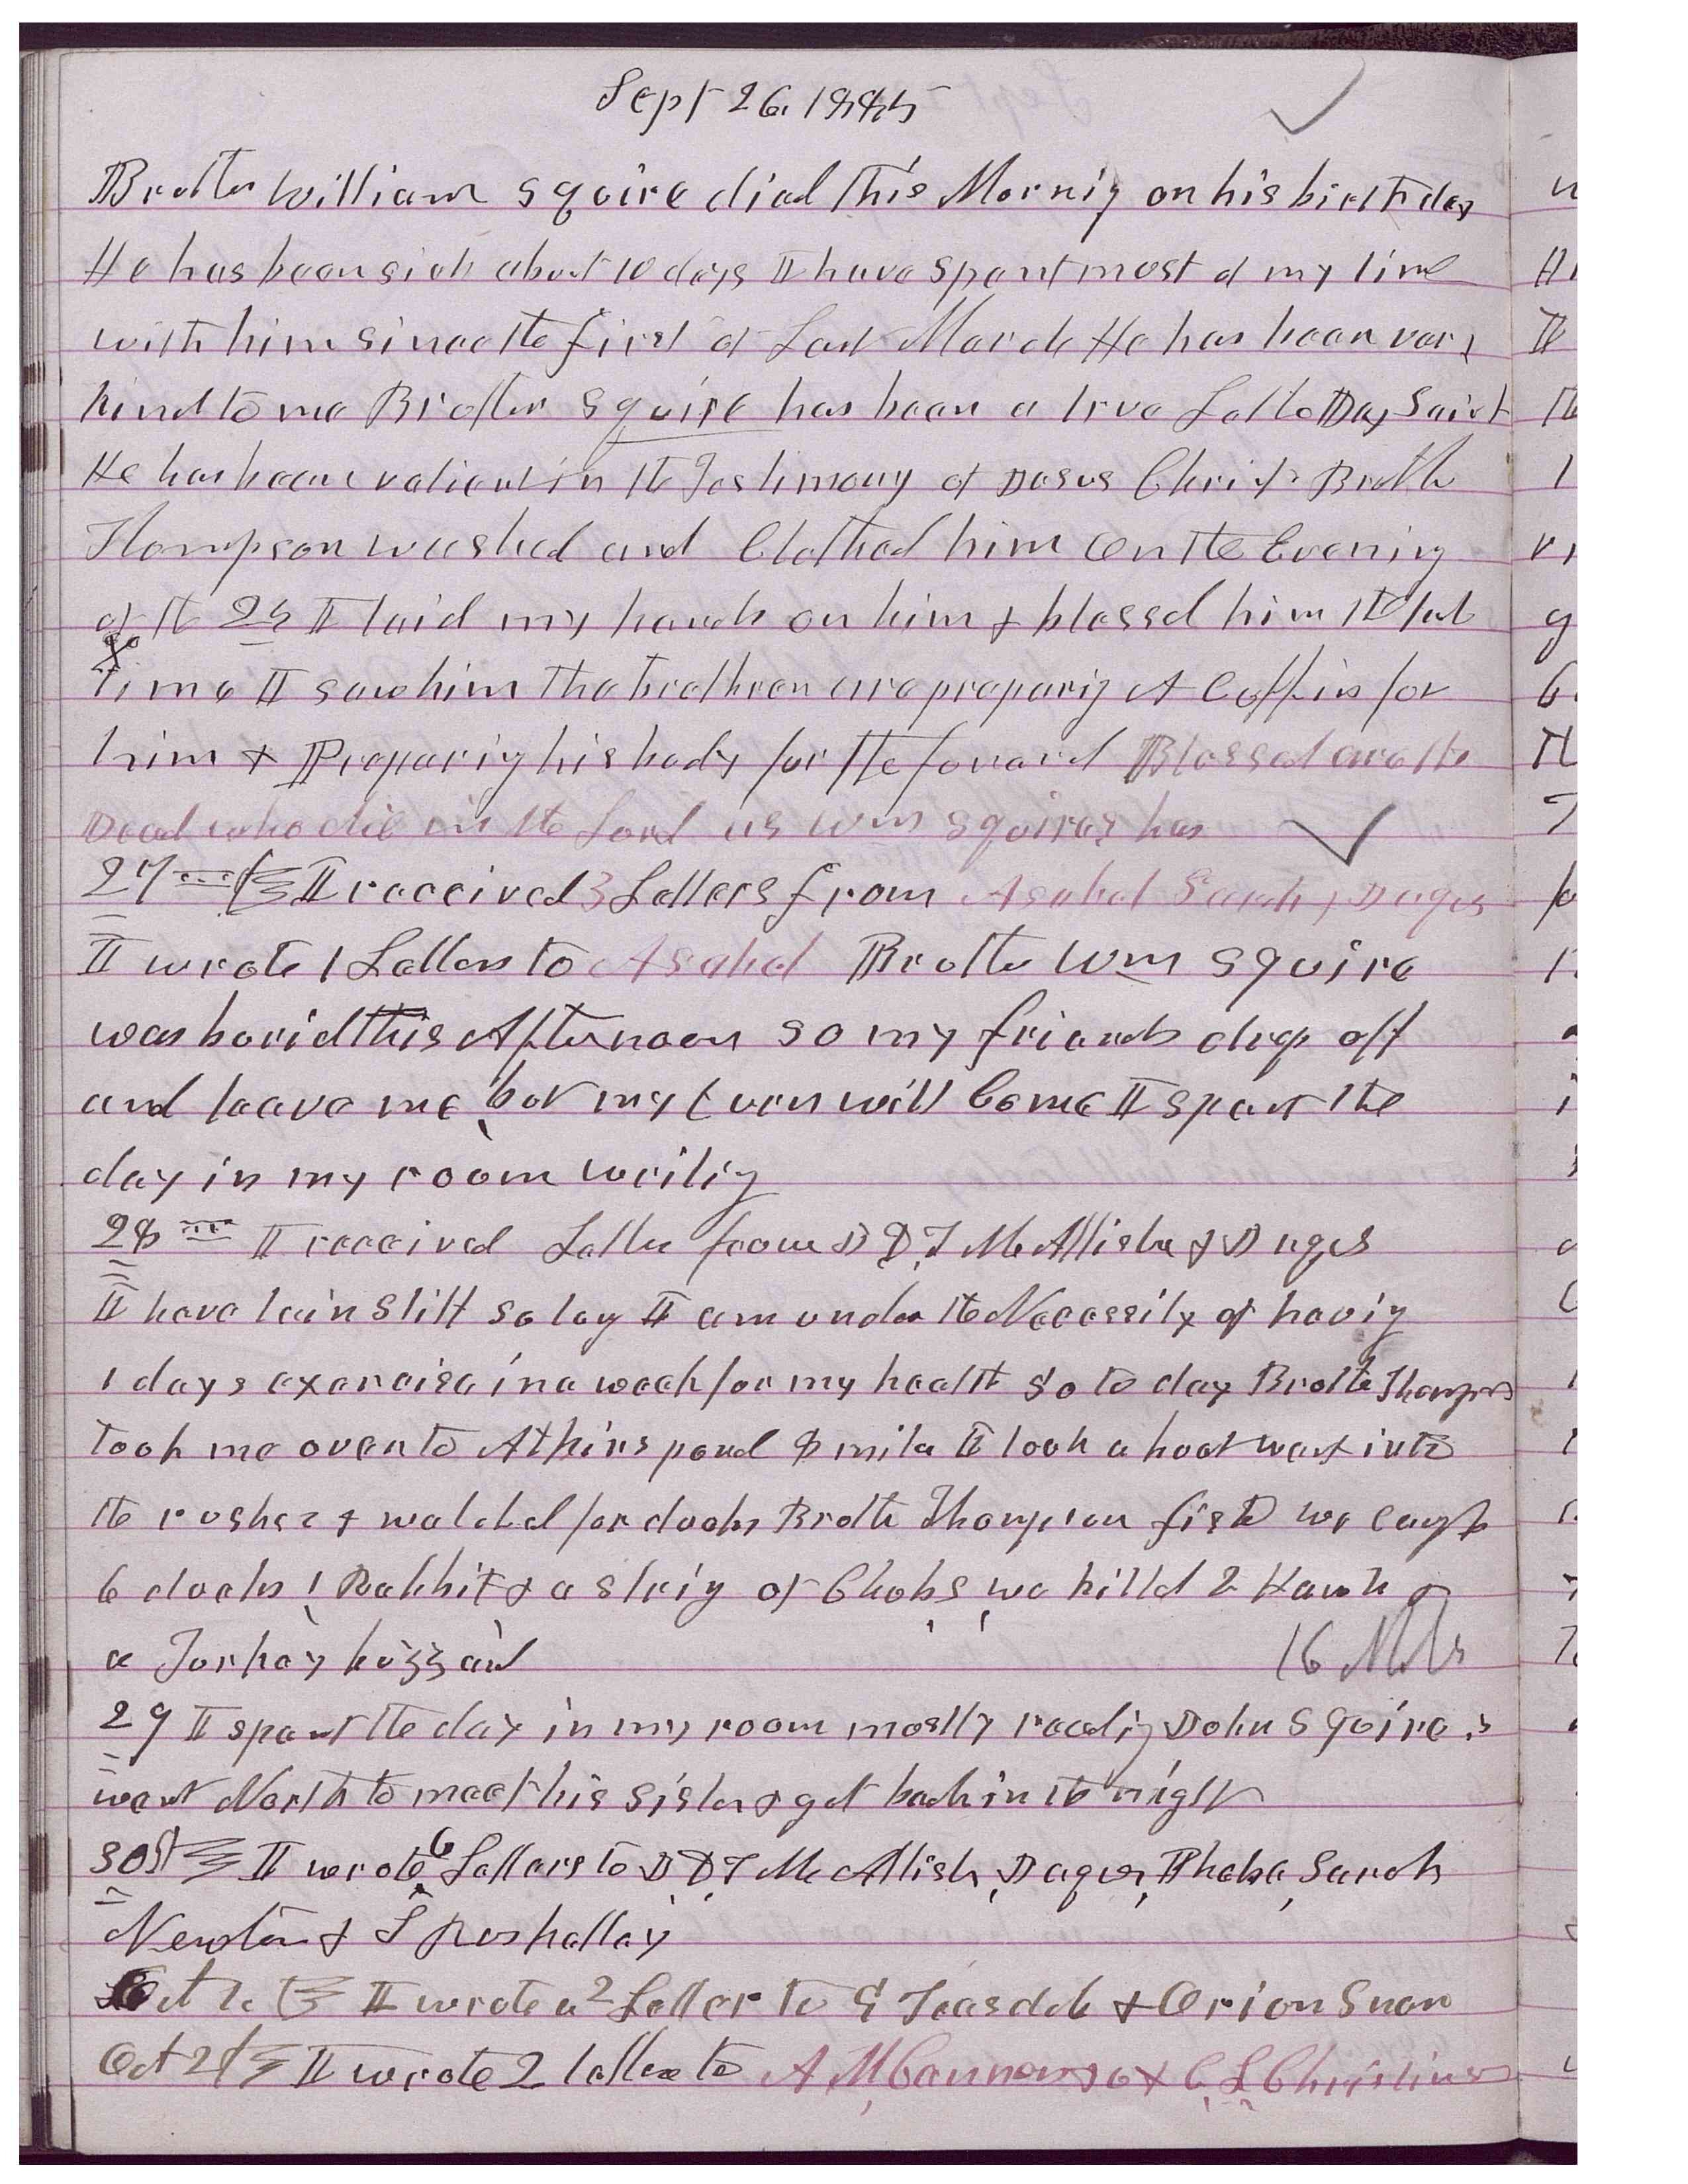 Sept 26. 1885
Brother William Squire died this Mornig on his birth day
He has been sick about 10 days I have spent most of my time
with him since the first of Last March He has been very
kind to me Brother Squire has been a true Latter Day Saint
He has been valient in the Testimony of Jesus Christ Brother
Thompson washed and Clothed him on the Evening
of the 25 I laid my hands on him & blessed him the last
time I saw him The brethren are preparig A Coffin for
him & Preparig his body for the foneral Blessed are the
Dead who die in the Lord as Wm Squires has
27 I received 3 Letters from Asahel Sarah, Jaques
I wrote 1 Letters to Asahel Brother Wm Squire
was burid this Afternoon so my friends drop off
and leave me, but my turn will Come I spent the
day in my room writig
28 I received Letter from D D T McAllister & Jaques
I have lain still so log I am under the Necessity of havig
1 days exercise in a week for my health So to day Brother Thompson
took me over to Atkins pond 8 mile I took a boat went into
the rushes & watched for ducks Brother Thompson fishd we caught
6 ducks 1 Rabbit & a strig of Chubs, we killd 2 Hawk
a Turkey buzzard 16 Mls
29 I spent the day in my room mostly readig John Squires
went North to meet his sister & got back in the night
30st I wrote 6 Letters to D D T McAllister, Jaques, Pheba, Sarah
Newton & L
Oct 1. I wrote a 2 Letter to G Teasdale & Orion Snow
Oct 2 I wrote 2 letters to A M Cannon & C L Christins